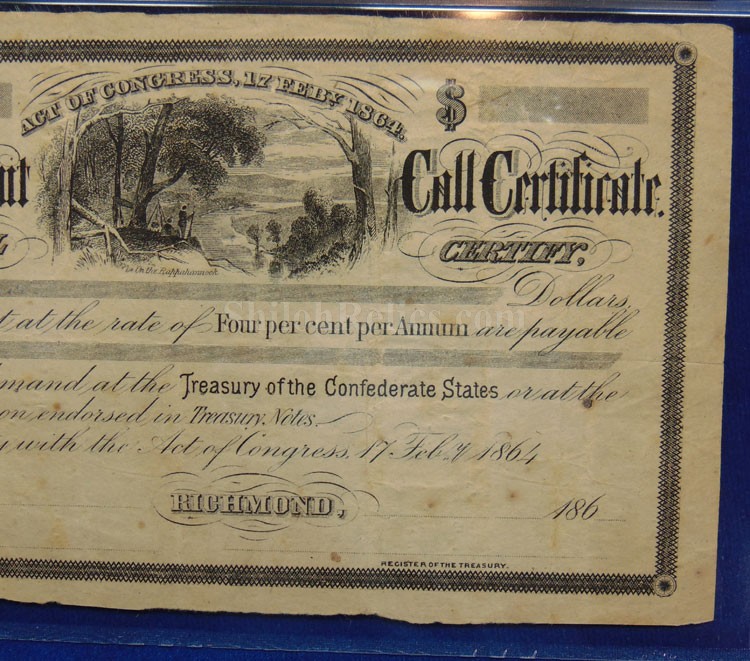 ACT OF CONGRESS, 17 FEBY 1864.
$
Call Certificate.
CERTIFY,
On the Rappahannock
Dollars,
ShilohRelics.com
at the rate of Four per cent per Annum are payable
at the Treasury of the Confederate States or at the
endorsed in Treasury Notes.
with the Act of Congress, 17 Feby 1864
RICHMOND, 186
REGISTER OF THE TREASURY.